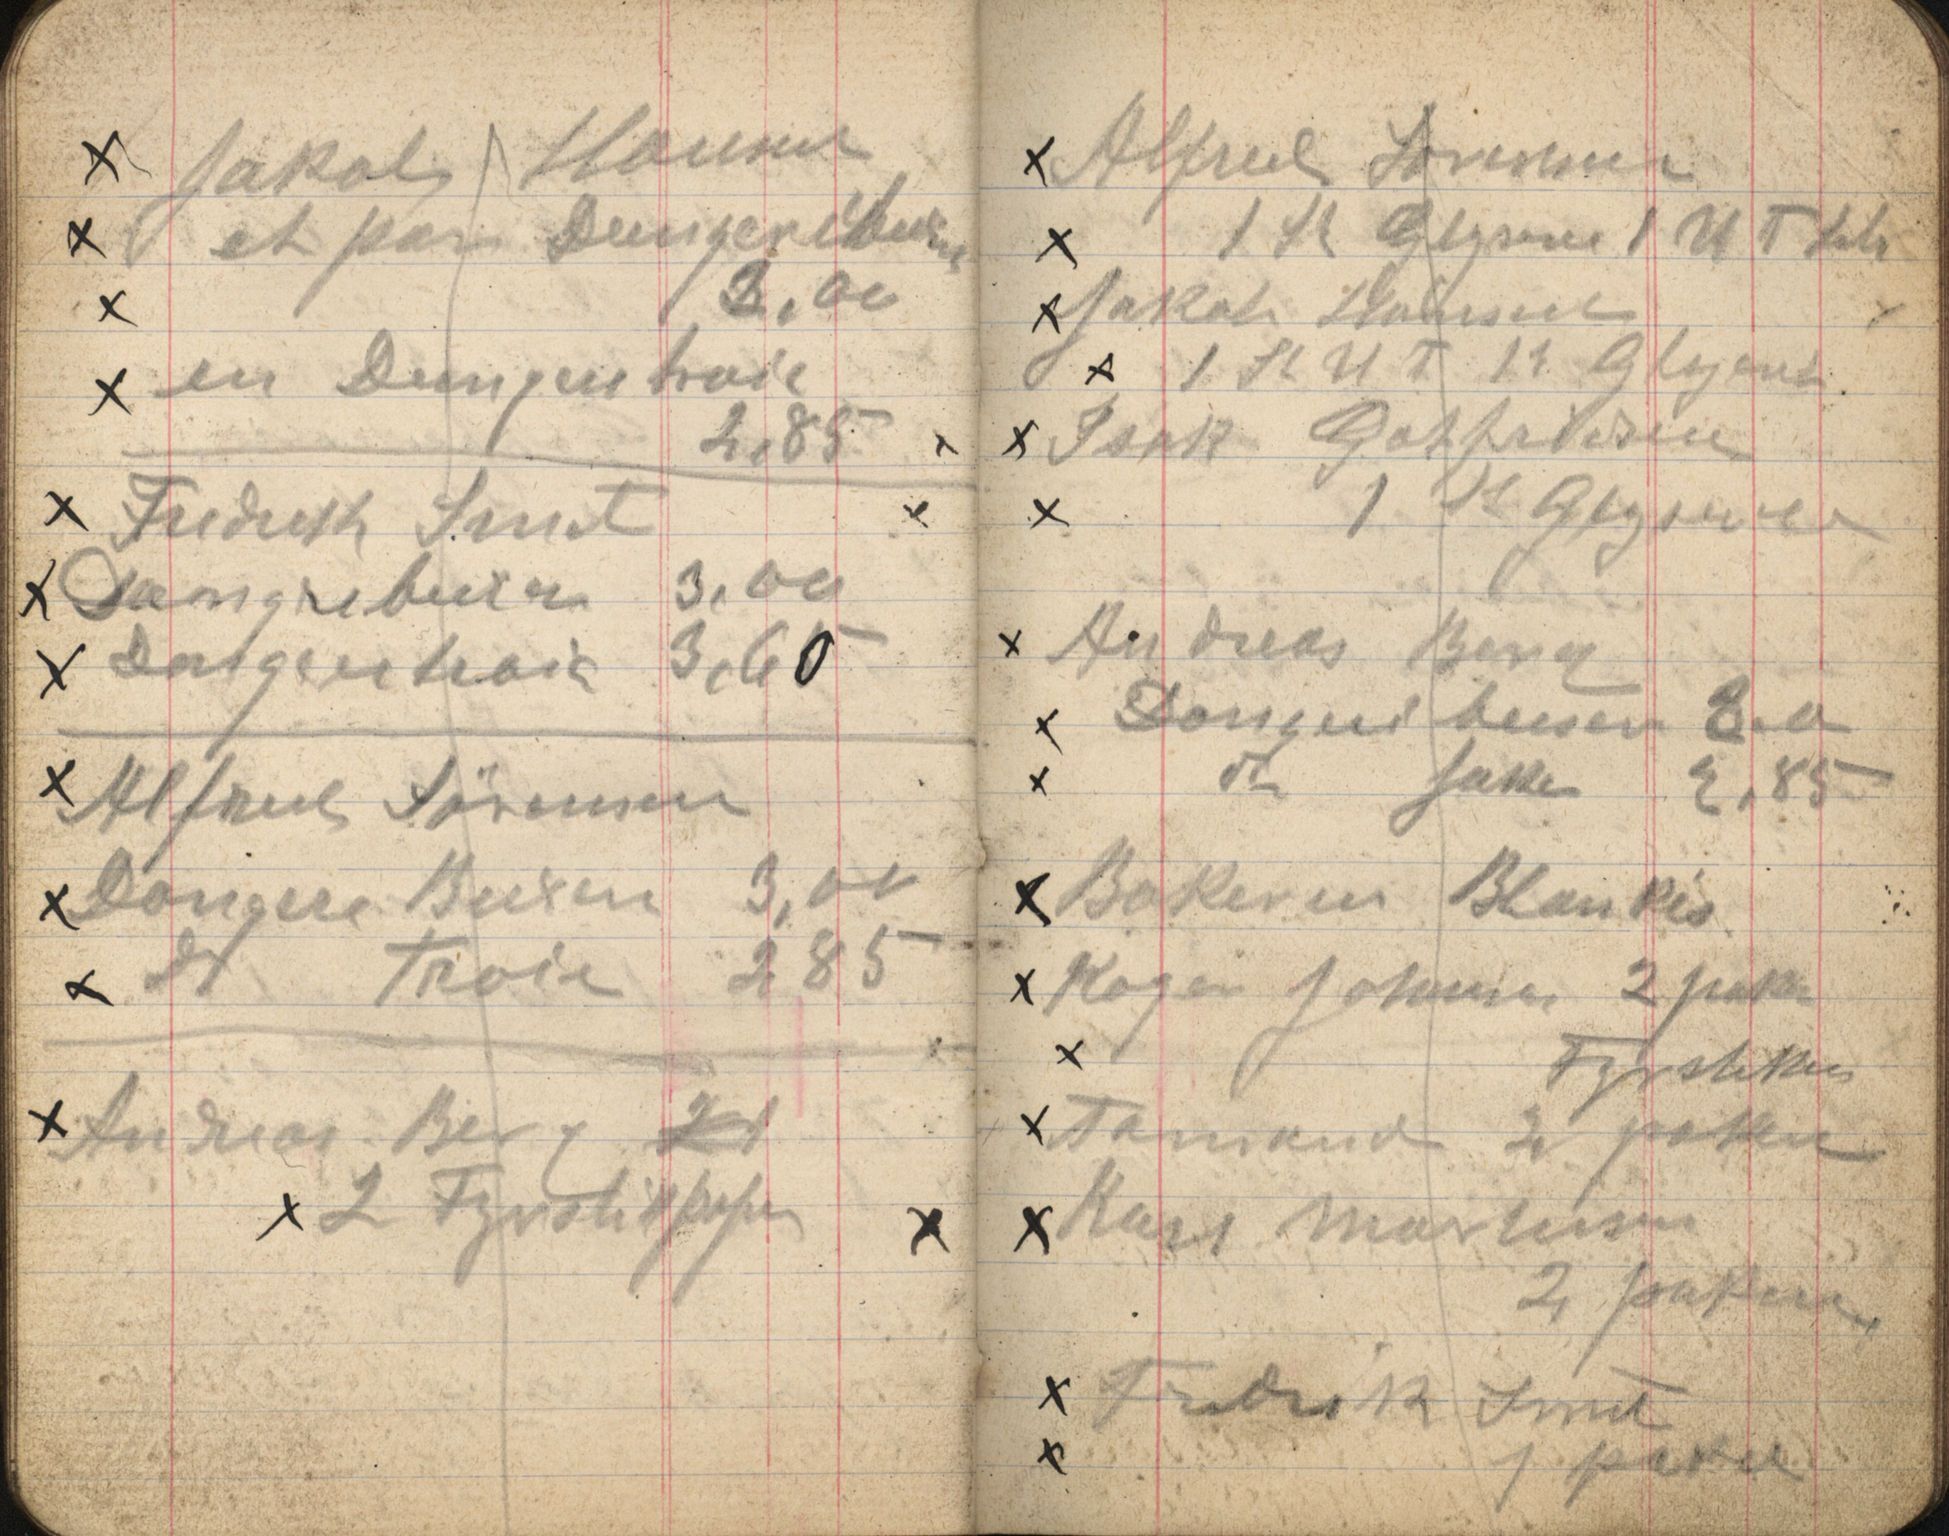 Jakob Hansen
et par Dongeribuxe
3,00
en Dungeritroie
2,85
Fredrik Smit
Dongrebuxer 3,00
Dongeretroie 3,60
Alfred Sørensen
Dongere Buxer 3,00
dt Troie 2 85
Andreas Berg
2 Fyrstikpaper
Alfred Sørensen
1 St Glyserin 1 U T
Jakob Hansen
1 St U T 1 St Glyserin
Isak Gotfridsen
1 St Glyserin
Andreas Berg
Dongeri buxer 3.0
dt Jake 2,85
Bakeren Blankis
Kogen Johnsen 2 paker
Fyrstikker
2 paker
Karl Martinsen
2 paker
Fredrik Smit
1 pakke